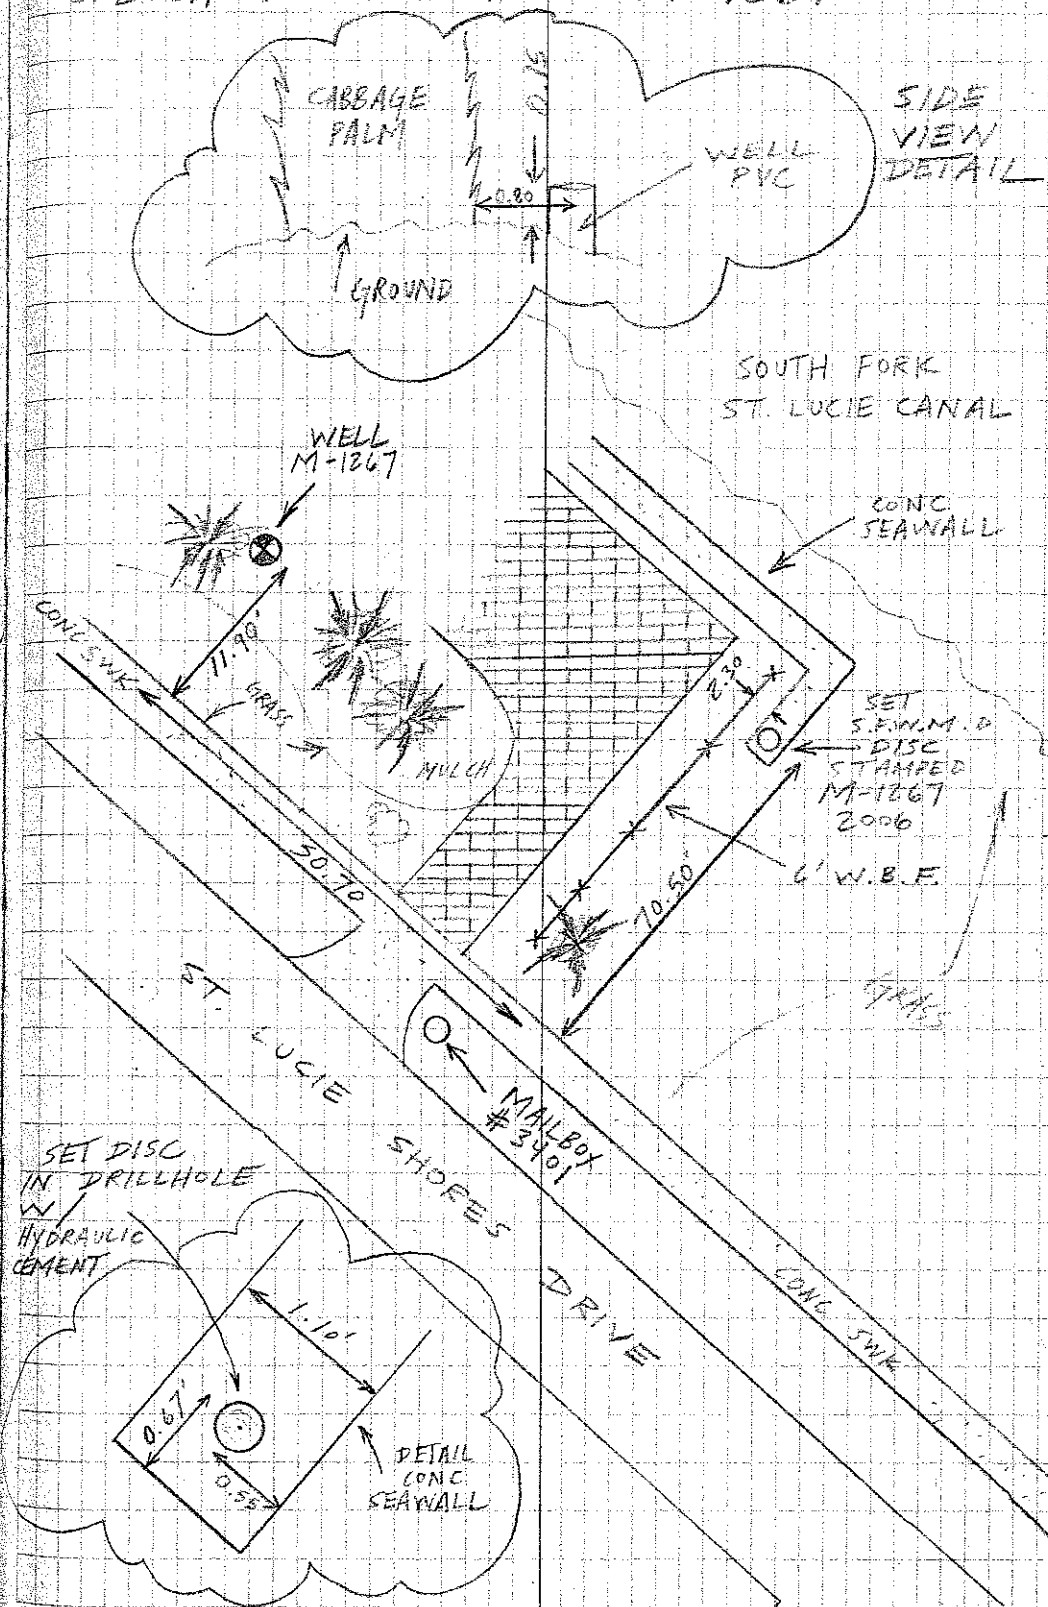 CABBAGE
PALM
0.15
SIDE
VIEW
DETAIL
WELL
PVC
0.80
GROUND
SOUTH FORK
ST. LUCIE CANAL
WELL
M-1267
CONC
SEAWALL
CONC SWK
11.90'
GRASS
2.30
SET
S.F.W.M.D
DISC
STAMPED
M-1267
2006
MULCH
50.70
6' W.B.F.
70.50'
GRASS
ST. LUCIE SHORES DRIVE
MAILBOX
# 3401
SET DISC
IN DRILLHOLE
W/
HYDRAULIC
CEMENT
CONC SWK
1.10'
0.67'
0.55
DETAIL
CONC
SEAWALL